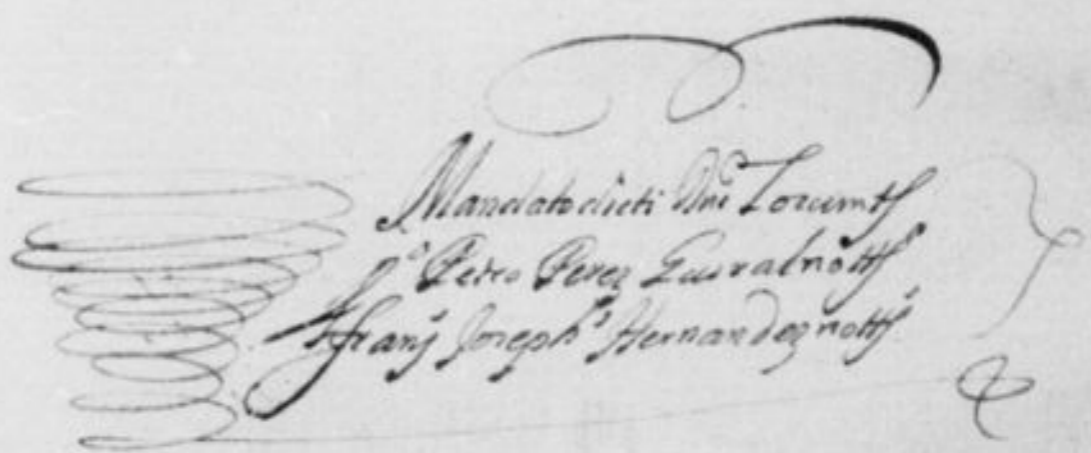 Mandato dicti Dni Locumts
Pedro Perez notts
franz Joseph Hernandez notts